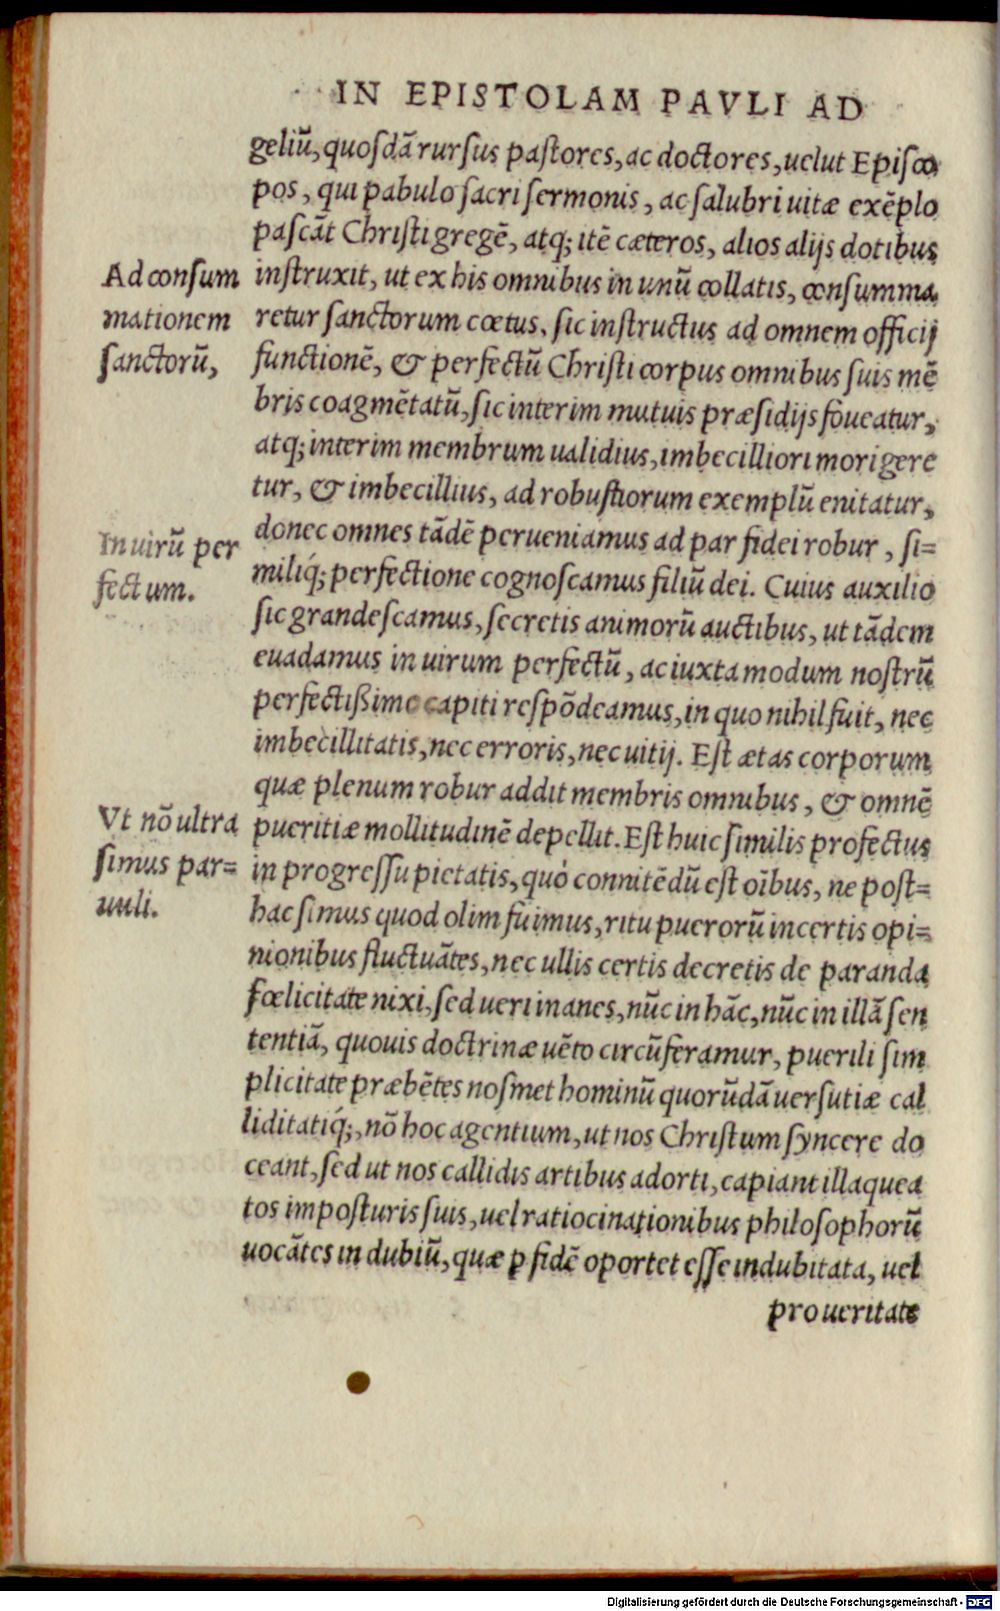 IN EPISTOLAM PAVLI AD
geliũ, quosdã rursus pastores, ac doctores, uelut Episco
pos, qui pabulo sacri sermonis, ac salubri uitæ exẽplo
pascãt Christi gregẽ, atq; itẽ cæteros, alios alijs dotibus
Ad consum
mationem
sanctorũ,
instruxit, ut ex his omnibus in unũ collatis, consumma
retur sanctorum cœtus, sic instructus ad omnem officij
functionẽ, & perfectũ Christi corpus omnibus suis mẽ
bris coagmẽtatũ, sic interim mutuis præsidijs foueatur,
atq; interim membrum ualidius, imbecilliori morigere
tur, & imbecillius, ad robustiorum exemplũ enitatur,
In uirũ per
fectum.
donec omnes tãdẽ perueniamus ad par fidei robur, si=
miliq́; perfectione cognoscamus filiũ dei. Cuius auxilio
sic grandescamus, secretis animorũ auctibus, ut tãdem
euadamus in uirum perfectũ, ac iuxta modum nostrũ
perfectißimo capiti respõdeamus, in quo nihil fuit, nec
imbecillitatis, nec erroris, nec uitij. Est ætas corporum
quæ plenum robur addit membris omnibus, & omnẽ
Vt nõ ultra
simus par=
uuli.
pueritiæ mollitudinẽ depellit. Est huic similis profectus
in progressu pietatis, quò connitẽdũ est oĩbus, ne post=
hac simus quod olim fuimus, ritu puerorũ incertis opi=
nionibus fluctuãtes, nec ullis certis decretis de paranda
fœlicitate nixi, sed ueri inanes, nũc in hãc, nũc in illã sen
tentiã, quouis doctrinæ uẽto circũferamur, puerili sim
plicitate præbẽtes nosmet hominũ quorũdã uersutiæ cal
liditatiq́;, nõ hoc agentium, ut nos Christum syncere do
ceant, sed ut nos callidis artibus adorti, capiant illaquea
tos imposturis suis, uel ratiocinationibus philosophorũ
uocãtes in dubiũ, quæ ꝑ fidẽ oportet esse indubitata, uel
pro ueritate
Digitalisierung gefördert durch die Deutsche Forschungsgemeinschaft - DFG